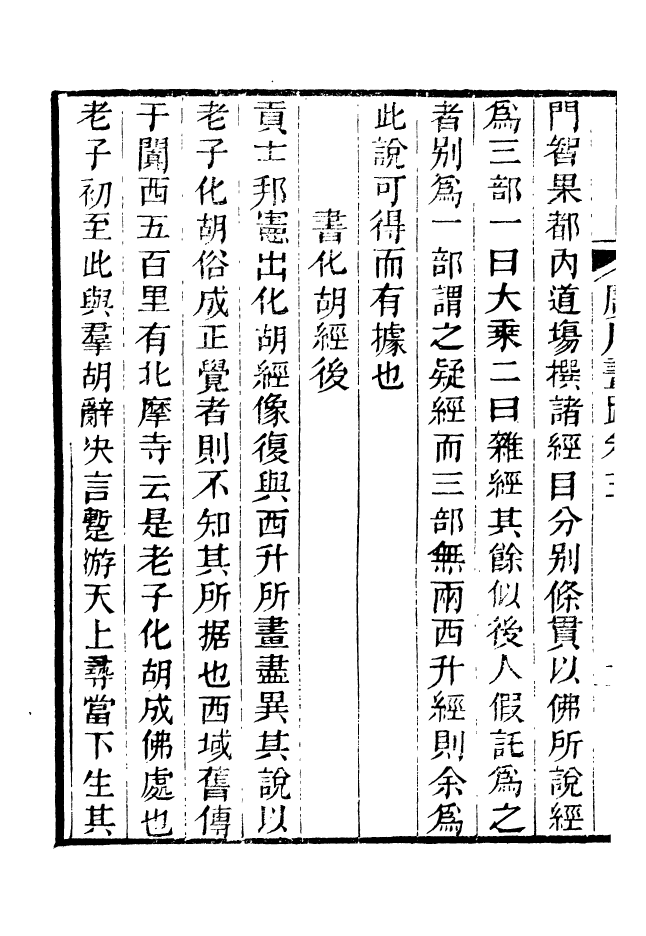 門智果都內道塲撰諸經目分別條貫以佛所說經
爲三部一曰大乘二曰雜經其餘似後人假託爲之
者別爲一部謂之疑經而三部無兩西升經則余爲
此說可得而有據也
書化胡經後
貢士邦憲出化胡經像復與西升所畫盡異其說以
老子化胡俗成正覺者則不知其所据也西域舊傳
于闐西五百里有北摩寺云是老子化胡成佛處也
老子初至此與羣胡辭决言蹔游天上尋當下生其